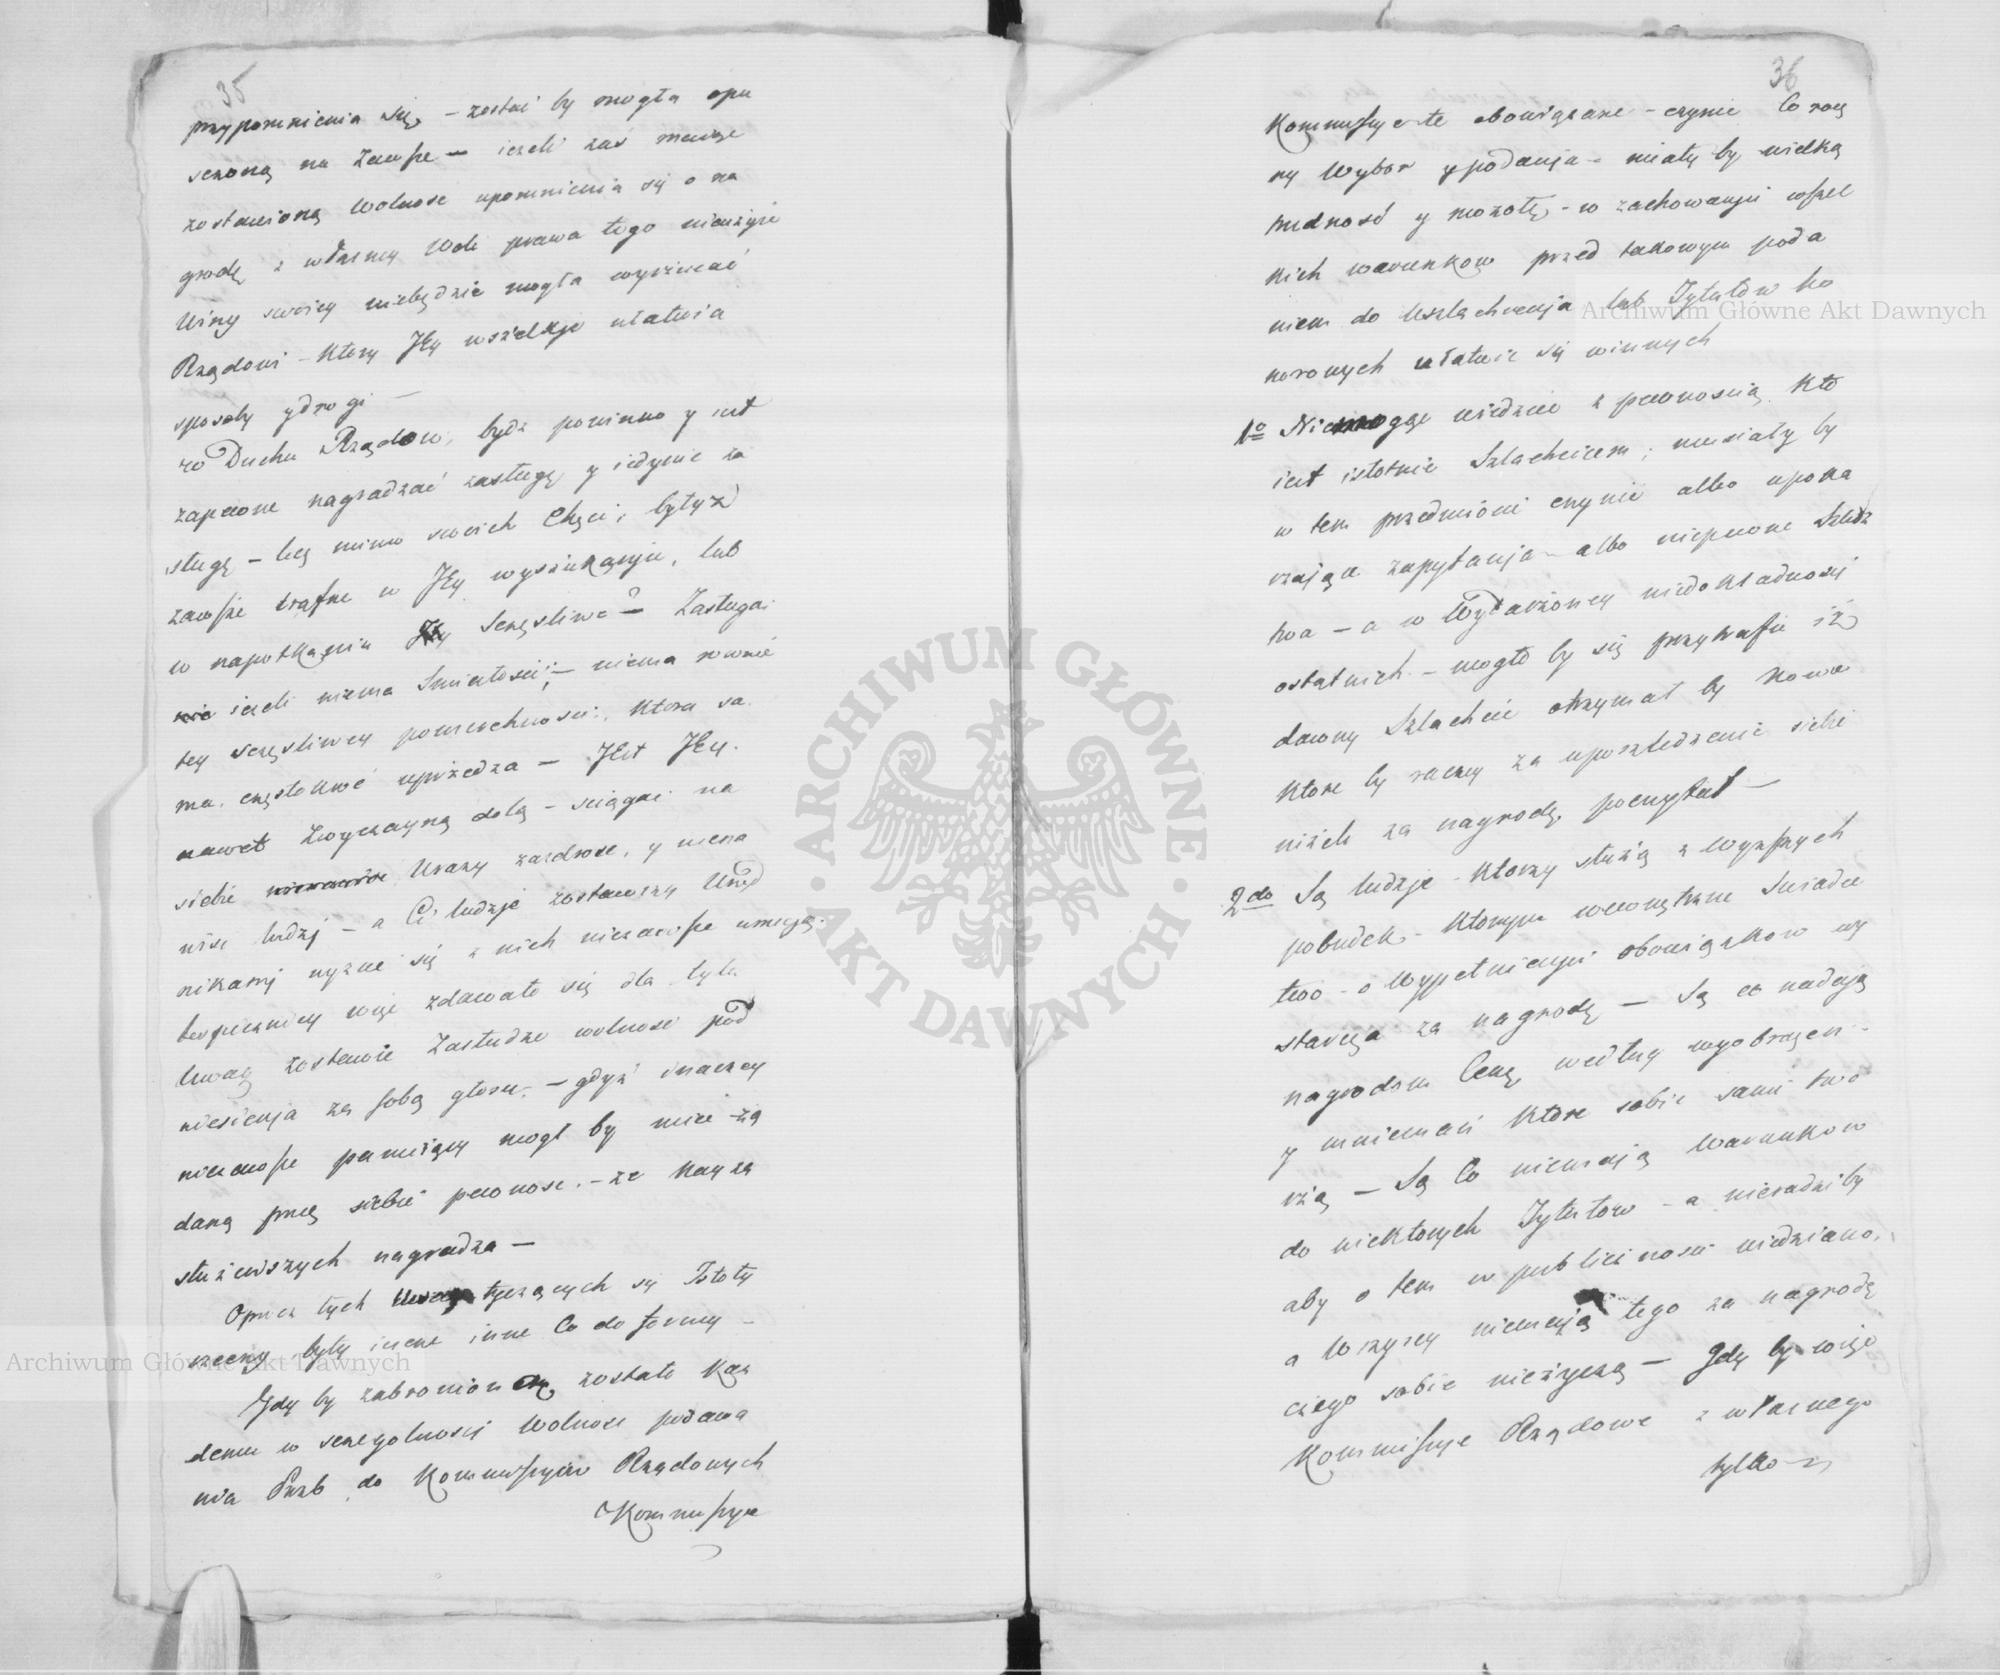 35
przypomnienia się, – zostać by mogła opu
szczoną na zawsze – ieżeli zaś maiąc
zostawioną wolnosc upomnienia się o na
grodę z własney woli prawa tego nieużyie
winy swoiey niebędzie mogła wyrzucać
Rządowi – ktory Jey wszelkie ułatwia
sposoby y drogi –
ro Duchu Rządow, bydz powinno y iest
zapewne nagradzać zasługę y iedynie za
sługę – lecz mimo swoich Chęci, byłyż
zawsze trafne w Jey wyszukaniu, lub
w napotkaniu Jey Szczęsliwe? – Zasługa
ieżeli niema Smiałości; – niema rownie
tey szczęsliwey powierzchowności, ktora sa
ma, częstokroć uprzedza – Jest Jey
nawet zwyczayną dolą – sciągać na
siebie Urazy zazdrosc, y niena
wisc ludzi – a Ci ludzie zostawszy Urzęd
nikami wyzuc się z nich niezawsze umieją.
bezpieczniey więc zdawało się dla tylu
Uwag zostawic Zasłudze wolnosc pod
niesienia za sobą głosu, – gdyż inaczey
niezawsze pamięcy mogł by miec za
daną przez siebie pewnosc. – że nayza
służeńszych nagradza –
Oprocz tych Uwag tyczących się Istoty
rzeczy były ieszcze inne Co do formy –
Gdy by zabronioną zostało Każ
demu w szczegolnosci Wolnosc podawa
nia Prozb do Kommissyiow Rządowych
Kommissye
36
Kommissye te obowiązane – czynic Co rocz
ny Wybor y podania – miały by wielką
trudność y mozołę – w zachowaniu wszel
kich warunkow przed takowym poda
niem do Uszlachcenia lub Tytułow ho
norowych ułatwic się winnych
1o Niemogąc wiedziec z pewnoscią Kto
iest istotnie Szlachcicem; musiały by
w tem przedmiocie czynić albo upoka
rzaiące zapytania – albo niepewne Sledz
twa – a w Wydarzoney niedokładnosci
ostatnich – mogło by się przytrafic iż
dawny Szlachcic otrzymał by nowe
ktore by raczey za uposzledzenie siebie
niżeli za nagrodę, poczytał –
2do Są ludzie – ktorzy służą z wyższych
pobudek – ktorym wewnętrzne Swiadec
two – o Wypełnieniu obowiązkow wy
starcza za nagrodę – Są co nadają
nagrodom Cenę według wyobrażen
y mniemań ktore sobie sami two
rzą – Są Co niemają warunkow
do niektorych Tytułow – a nieradzi by
aby o tem w publicznosci wiedziano,
a Wszyscy niemają tego za nagrodę
czego sobie nieżyczą – Gdy by więc
Kommissye Rządowe z własnego
tylko
Archiwum Główne Akt Dawnych
Archiwum Główne Akt Dawnych
ARCHIWUM GŁÓWNE · AKT DAWNYCH ·